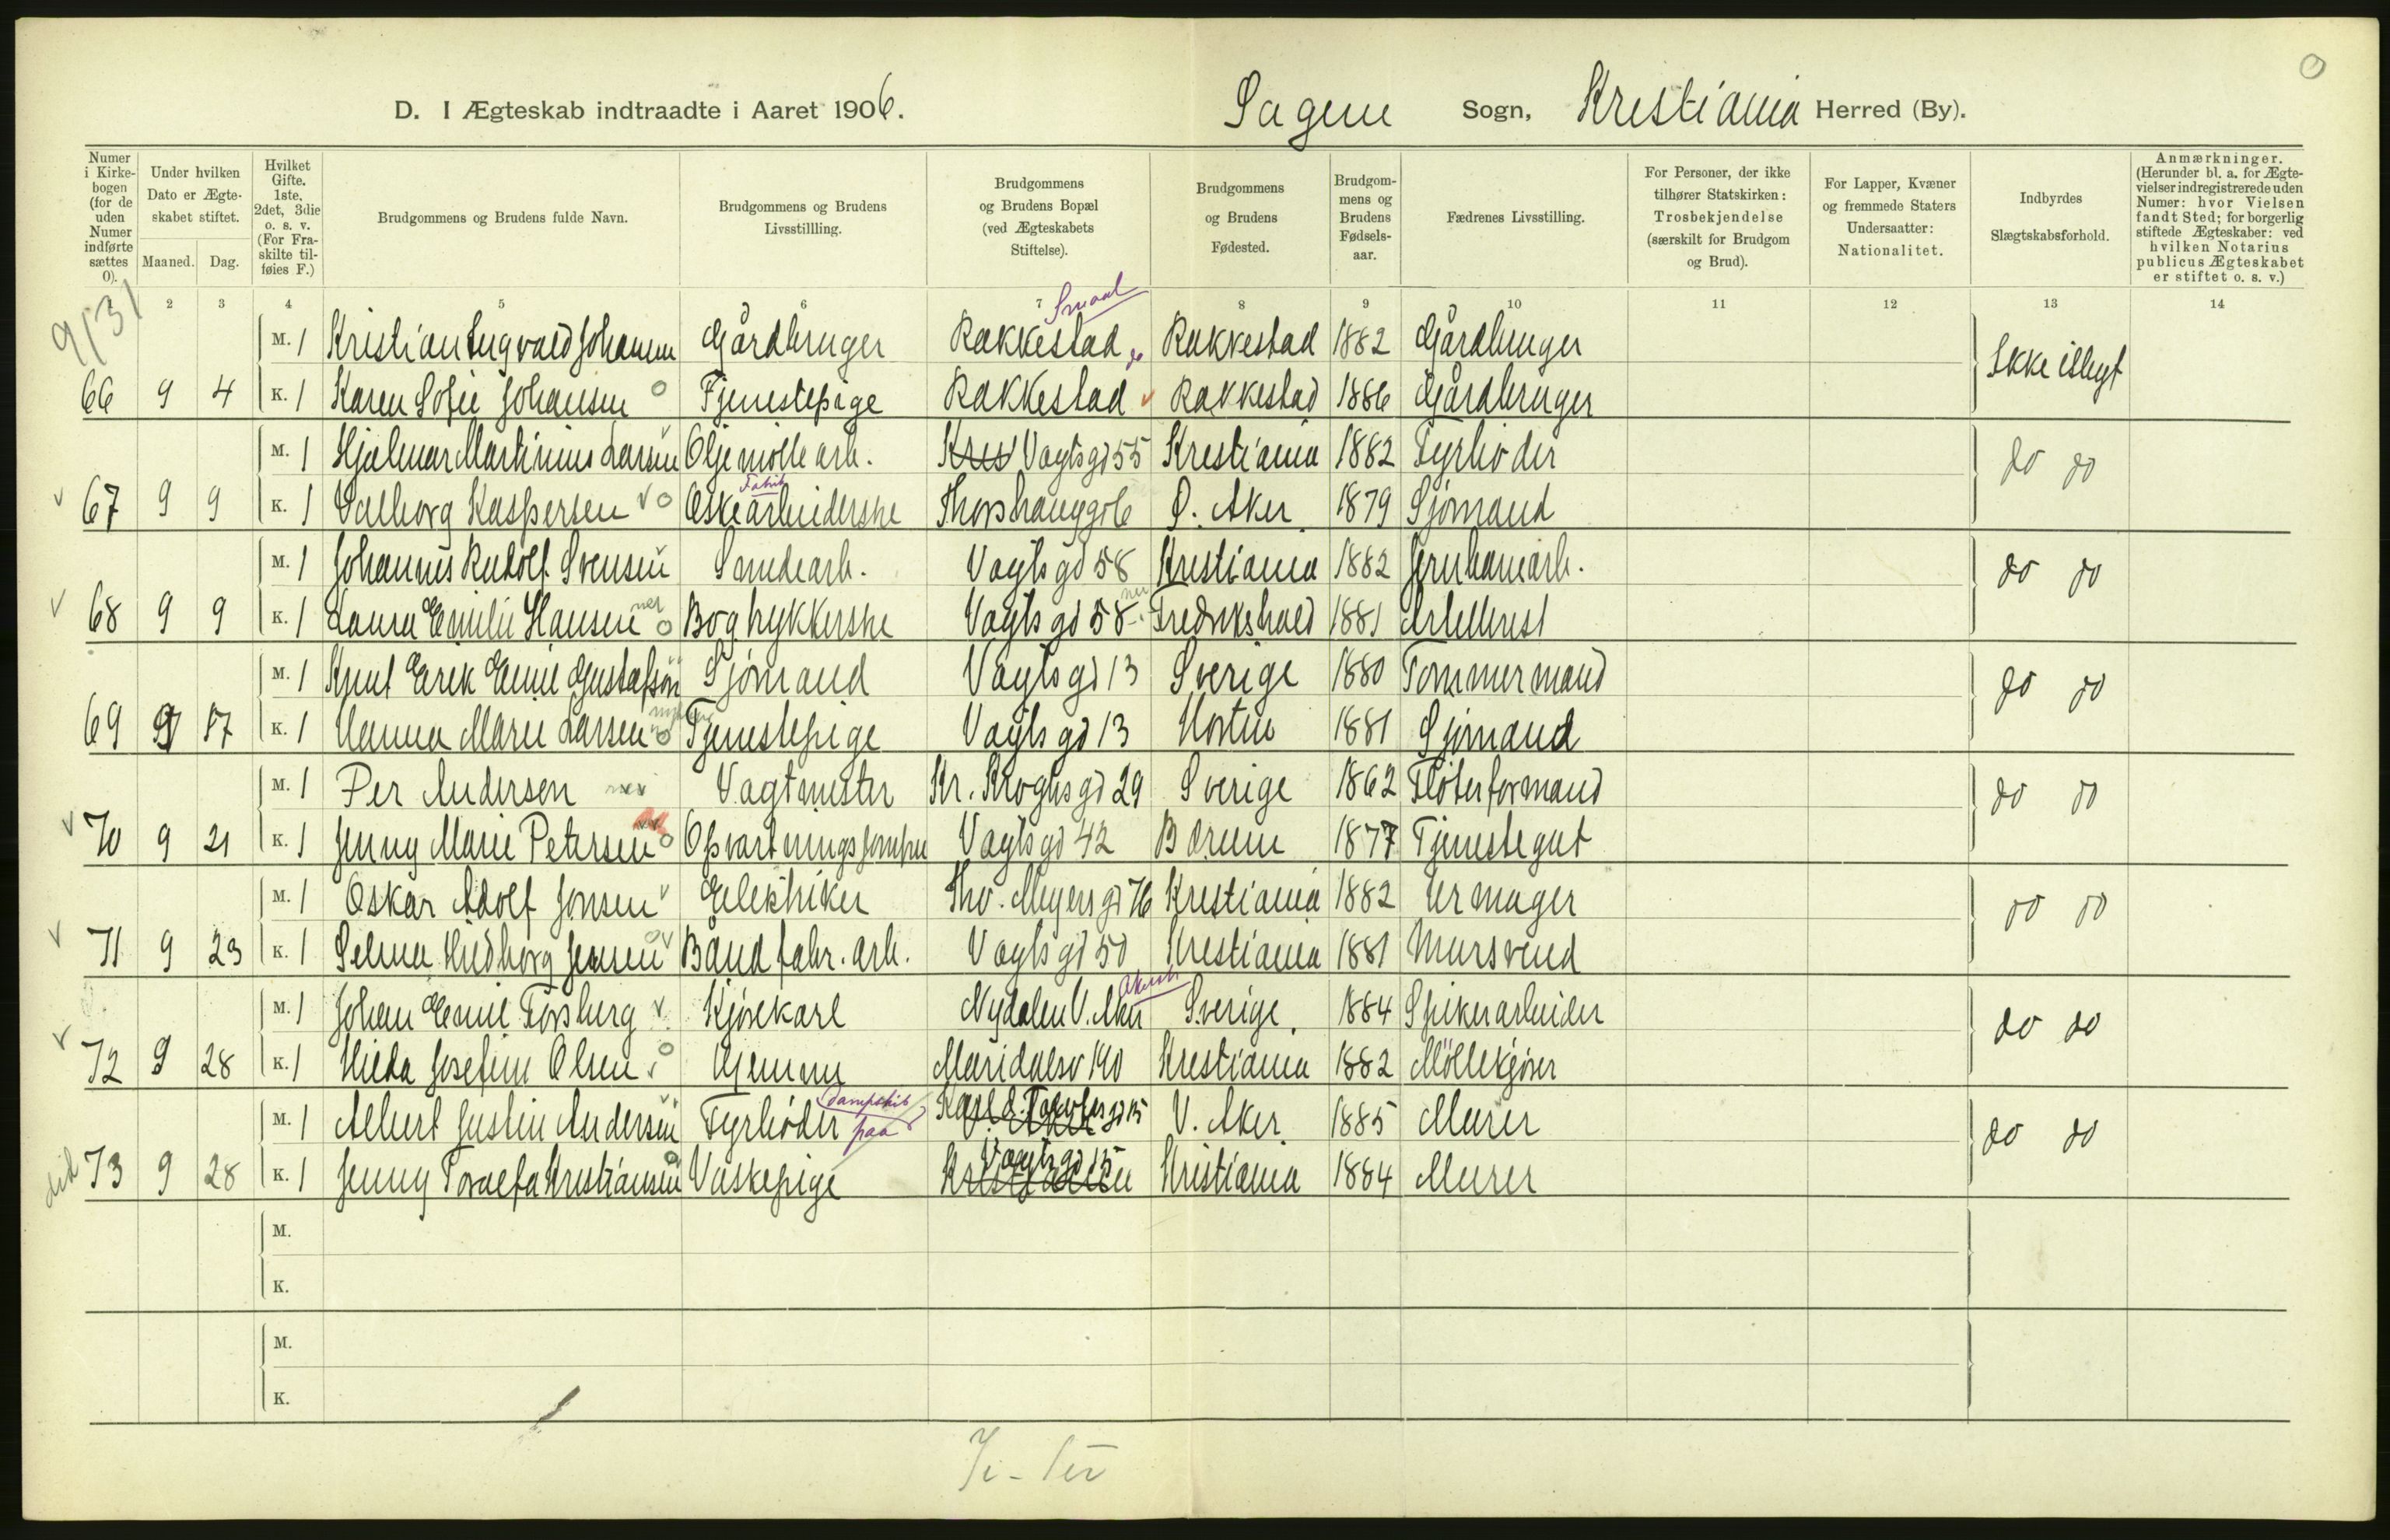 D. I Ægteskab indtraadte i Aaret 1906. Sagene Sogn, Kristiania Herred (By).
Numer i Kirke-bogen (for de uden Numer indførte sættes 0).
Under hvilken Dato er Ægte-skabet stiftet.
Maaned. Dag.
Hvilket Gifte. 1ste, 2det, 3die o. s. v. (For Fra-skilte til-føies F.)
Brudgommens og Brudens fulde Navn.
Brudgommens og Brudens Livsstillling.
Brudgommens og Brudens Bopæl (ved Ægteskabets Stiftelse).
Brudgommens og Brudens Fødested.
Brudgom-mens og Brudens Fødsels-aar.
Fædrenes Livsstilling.
For Personer, der ikke tilhører Statskirken: Trosbekjendelse (særskilt for Brudgom og Brud).
For Lapper, Kvæner og fremmede Staters Undersaatter: Nationalitet.
Indbyrdes Slægtskabsforhold.
Anmærkninger. (Herunder bl. a. for Ægte-vielser indregistrerede uden Numer: hvor Vielsen fandt Sted; for borgerlig stiftede Ægteskaber: ved hvilken Notarius publicus Ægteskabet er stiftet o. s. v.)
1 2 3 4 5 6 7 8 9 10 11 12 13 14
9/31
Smaal
M. 1 Kristian Ingvald Johansen Gårdbruger Rakkestad Rakkestad 1882 Gårdbruger Ikke isligt
66 9 4 K. 1 Karen Sofie Johansen Tjenestepige Rakkestad Rakkestad 1886 Gårdbruger
M. 1 Hjalmar Martinius Larsen Oljemölle arb. Kres Vogts gd 55 Kristiania 1882 Fyrböder do do
Fabrik
67 9 9 K. 1 Valborg Kaspersen Æskearbeiderske Thorshauggd 6 Ö. Aker 1879 Sjömand
M. 1 Johannes Rudolf Svensen Smedearb. Vogts gd 58 Kristiania 1882 Jernbanearb. do do
68 9 9 K. 1 Laura Emilie Hansen Bogtrykkerske Vogts gd 58 Fredrikshald 1881 Artellerist
M. 1 Knut Erik Emil Gustafson Sjömand Vogts gd 13 Sverige 1880 Tömmermand do do
69 9 17 K. 1 Hanna Marie Larsen Tjenestepige Vogts gd 13 Horten 1881 Sjömand
M. 1 Per Andersen Vagtmester Kr. Kroghs gd 29 Sverige 1862 Flöterformand do do
70 9 21 K. 1 Jenny Marie Petersen Opvartningsjomfru Vogts gd 42 Bærum 1877 Tjenestegut
M. 1 Oskar Adolf Jonsen Elektriker Thv. Meyers gd 76 Kristiania 1882 Urmager do do
71 9 23 K. 1 Selma Hildborg Jensen Båndfabr. arb. Vogts gd 50 Kristiania 1881 Mursvend
Akersh
M. 1 Johan Emil Forsberg Kjörekarl Nydalen V. Aker Sverige 1884 Spikerarbeider do do
72 9 28 K. 1 Hilda Josefine Olsen Hjemme Maridalsv 190 Kristiania 1882 Möllekjörer
dampskib
M. 1 Albert Justin Andersen Fyrböder paa V. Aker 1885 Murer do do
Vogts gd 15
73 9 28 K. 1 Jenny Toralfa Kristiansen Vaskepige Kristiania 1884 Murer
M.
K.
M.
K.